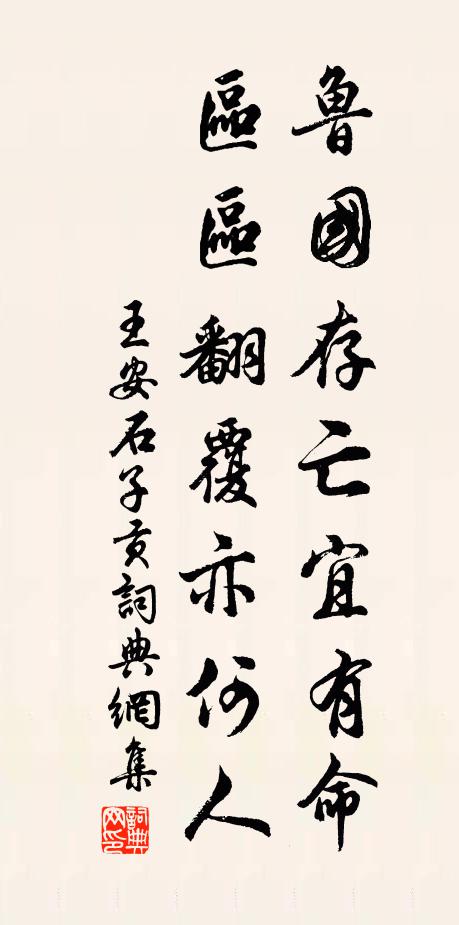 魯國存亡宜有命
區區翻覆亦何人
王安石子貢詞典網集
詞典网印